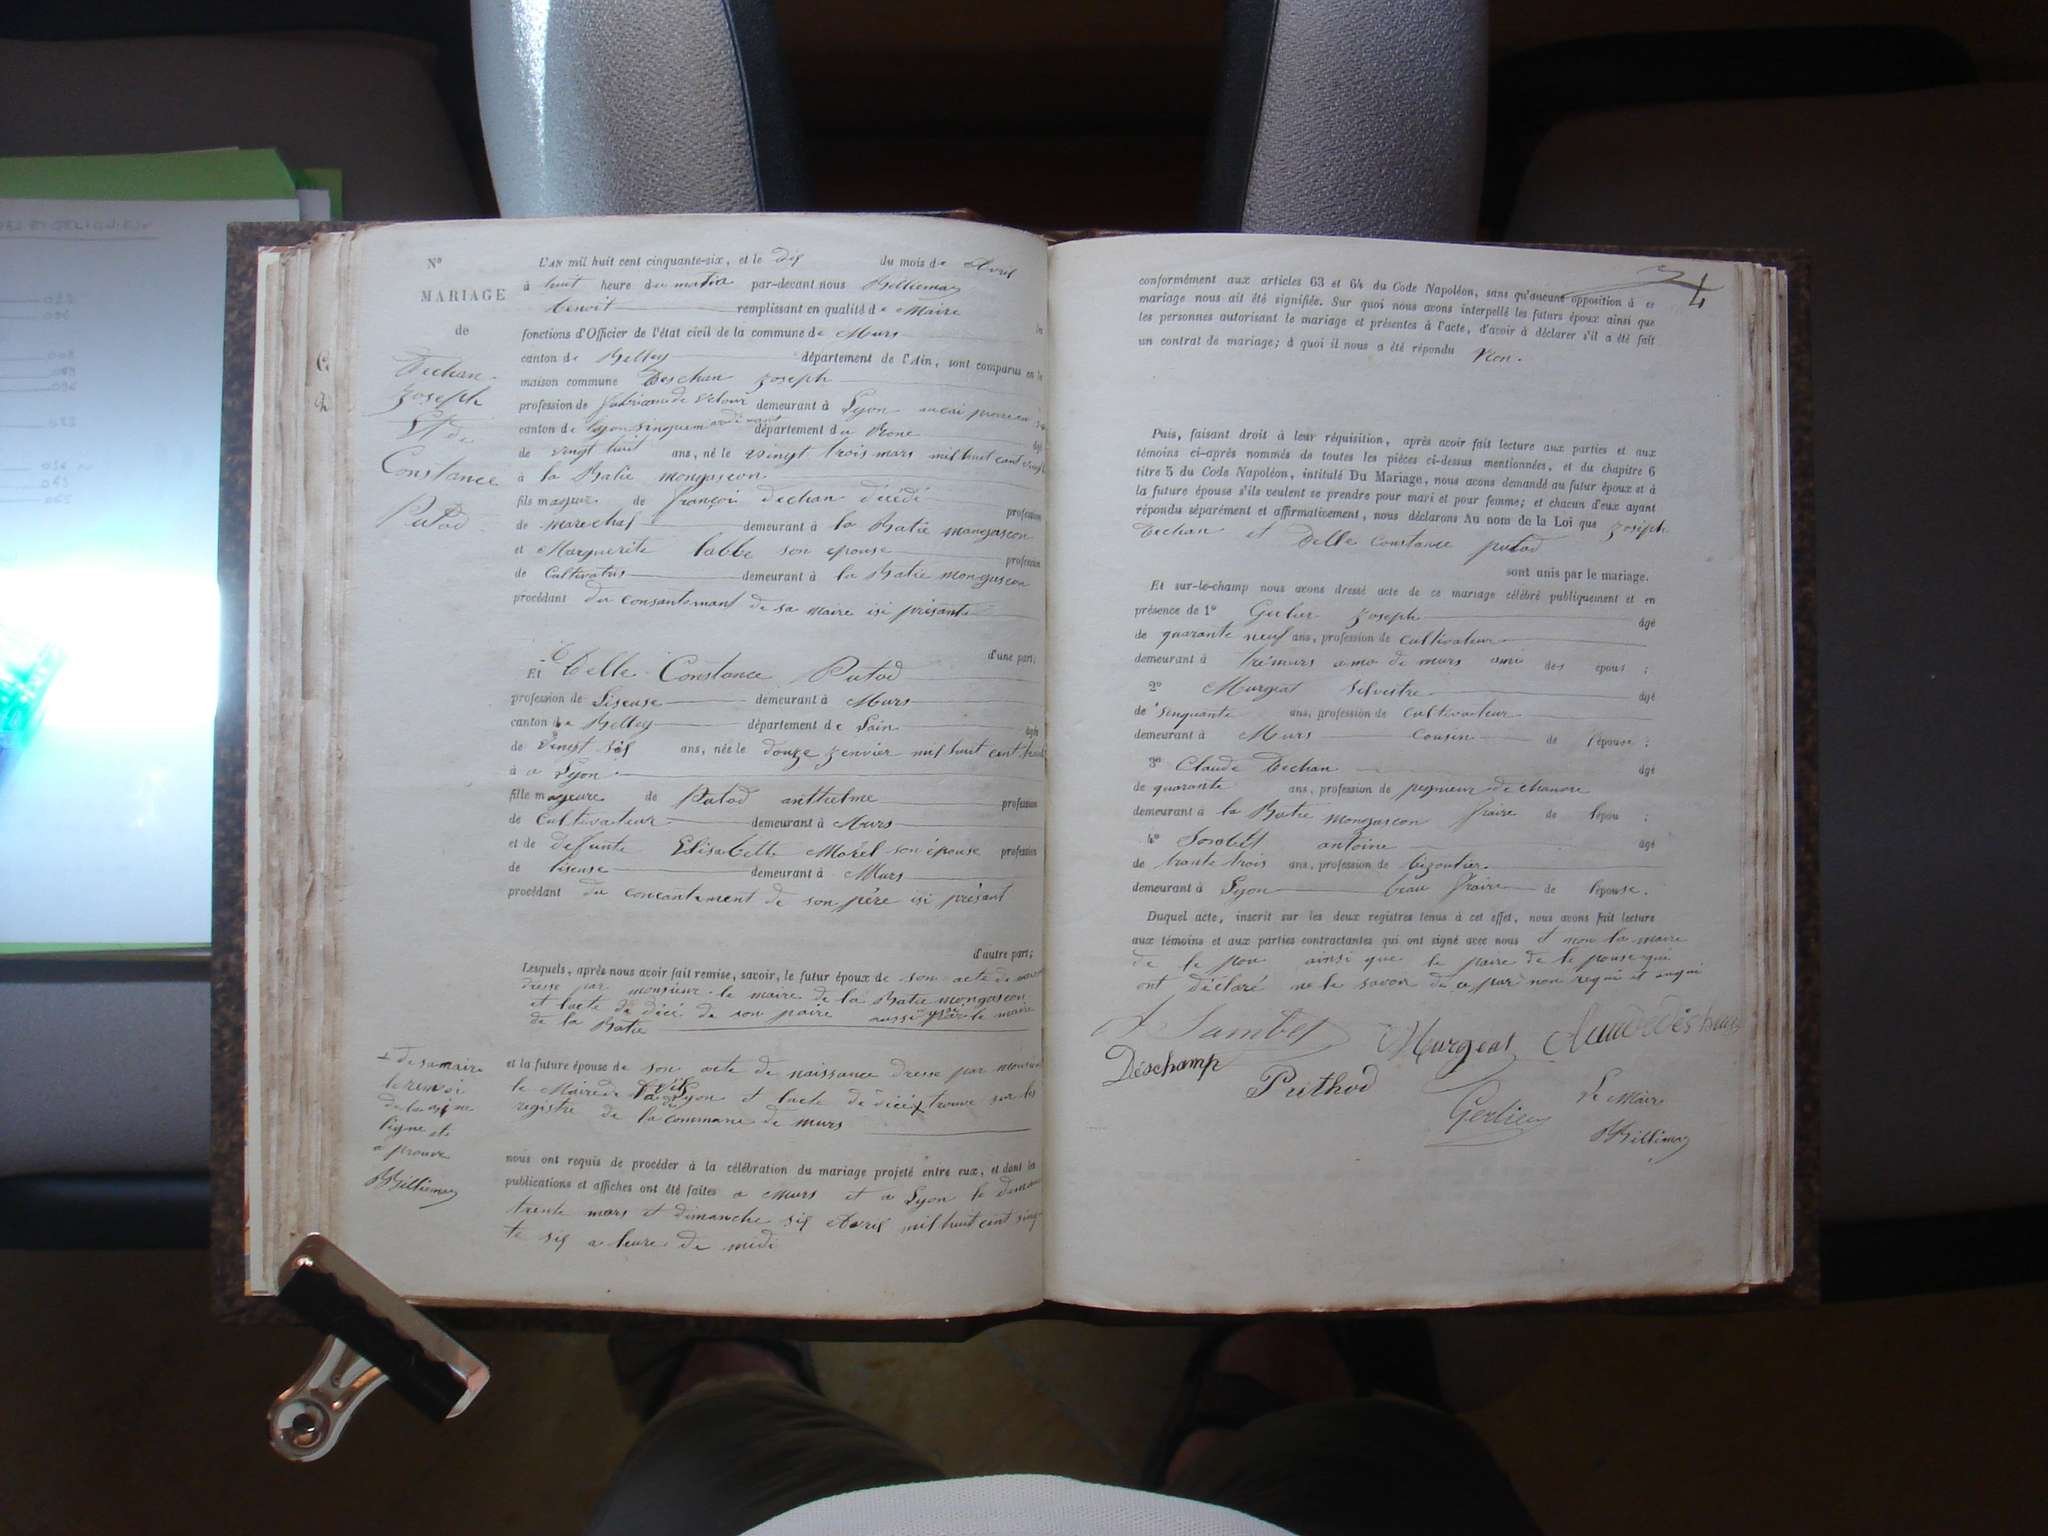 No
MARIAGE
de
Dechan
Joseph
Et de
Constance
Putod
L'AN mil huit cent cinquante-six, et le dix du mois de Avril
à huit heure du matin par-devant nous Billiemaz
benoit remplissant en qualité de Maire
fonctions d'Officier de l'état civil de la commune de Murs
canton de Belley département de l'Ain, sont comparus en la
maison commune Deschan Joseph
profession de fabrican de velour demeurant à Lyon
canton de Lyon département du Rone âgé
de vingt huit ans, né le vingt trois mars mil huit cent vingt
à la Batie mongascon
fils majeur de françoi dechan décédé profession
de marechal demeurant à la Batie mongascon
et Marguerite labbe son epouse profession
de Cultivatris demeurant à la Batie mongascon
procédant du consantemant de sa maire isi présante
d'une part;
Et Delle Constance Putod
profession de Liseuse demeurant à Murs
canton de Belley département de Lain âgée
de vingt sis ans, née le douze janvier mil huit cent trante
à a Lyon
fille majeure de Putod anthelme profession
de Cultivateur demeurant à Murs
et de defunte Elisabette Morel son épouse profession
de liseuse demeurant à Murs
procédant du concantement de son père isi présant
d'autre part;
Lesquels, après nous avoir fait remise, savoir, le futur époux de son acte de
dresse par monsieur le maire de la Batie mongascon
et lacte de décé de son paire aussi par le maire
de la Batie
et la future épouse de son acte de naissance dresse par monsieur
le Maire de Lyon et lacte de décé trouve sur les
registre de la commune de murs
de sa maire
le renvoi
ligne et
a prouve
BBilliemaz
nous ont requis de procéder à la célébration du mariage projeté entre eux, et dont les
publications et affiches ont été faites a Murs et a Lyon le
trente mars et dimanche six Avril mil huit cent sinq
te six a leure de midi
4
conformément aux articles 63 et 64 du Code Napoléon, sans qu'aucune opposition à ce
mariage nous ait été signifiée. Sur quoi nous avons interpellé les futurs époux ainsi que
les personnes autorisant le mariage et présentes à l'acte, d'avoir à déclarer s'il a été fait
un contrat de mariage; à quoi il nous a été répondu Non.
Puis, faisant droit à leur réquisition, après avoir fait lecture aux parties et aux
témoins ci-après nommés de toutes les pièces ci-dessus mentionnées, et du chapitre 6
titre 5 du Code Napoléon, intitulé Du Mariage, nous avons demandé au futur époux et à
la future épouse s'ils veulent se prendre pour mari et pour femme; et chacun d'eux ayant
répondu séparément et affirmativement, nous déclarons Au nom de la Loi que Joseph
Dechan et Delle Constance putod
sont unis par le mariage.
Et sur-le-champ nous avons dressé acte de ce mariage célébré publiquement et en
présence de 1o Gerlier Joseph âgé
de quarante neuf ans, profession de cultivateur
demeurant à de murs ami des epous ;
2o Murgeat Silvestre âgé
de sinquante ans, profession de cultivateur
demeurant à Murs cousin de l'épouse ;
3o Claude Dechan âgé
de quarante ans, profession de pegnieur de chanvre
demeurant à la Batie mongascon fraire de lépou ;
4o antoine âgé
de trante trois ans, profession de bizoutier
demeurant à Lyon beau fraire de lépouse.
Duquel acte, inscrit sur les deux registres tenus à cet effet, nous avons fait lecture
aux témoins et aux parties contractantes qui ont signé avec nous et non la maire
de le pou ainsi que le paire de le pouse qui
ont déclaré ne le savoir de ce par non requi et
A Sambet Murgeat Claude deschamp
Deschamp Puthod
Gerlier
Le Maire
BBilliemaz